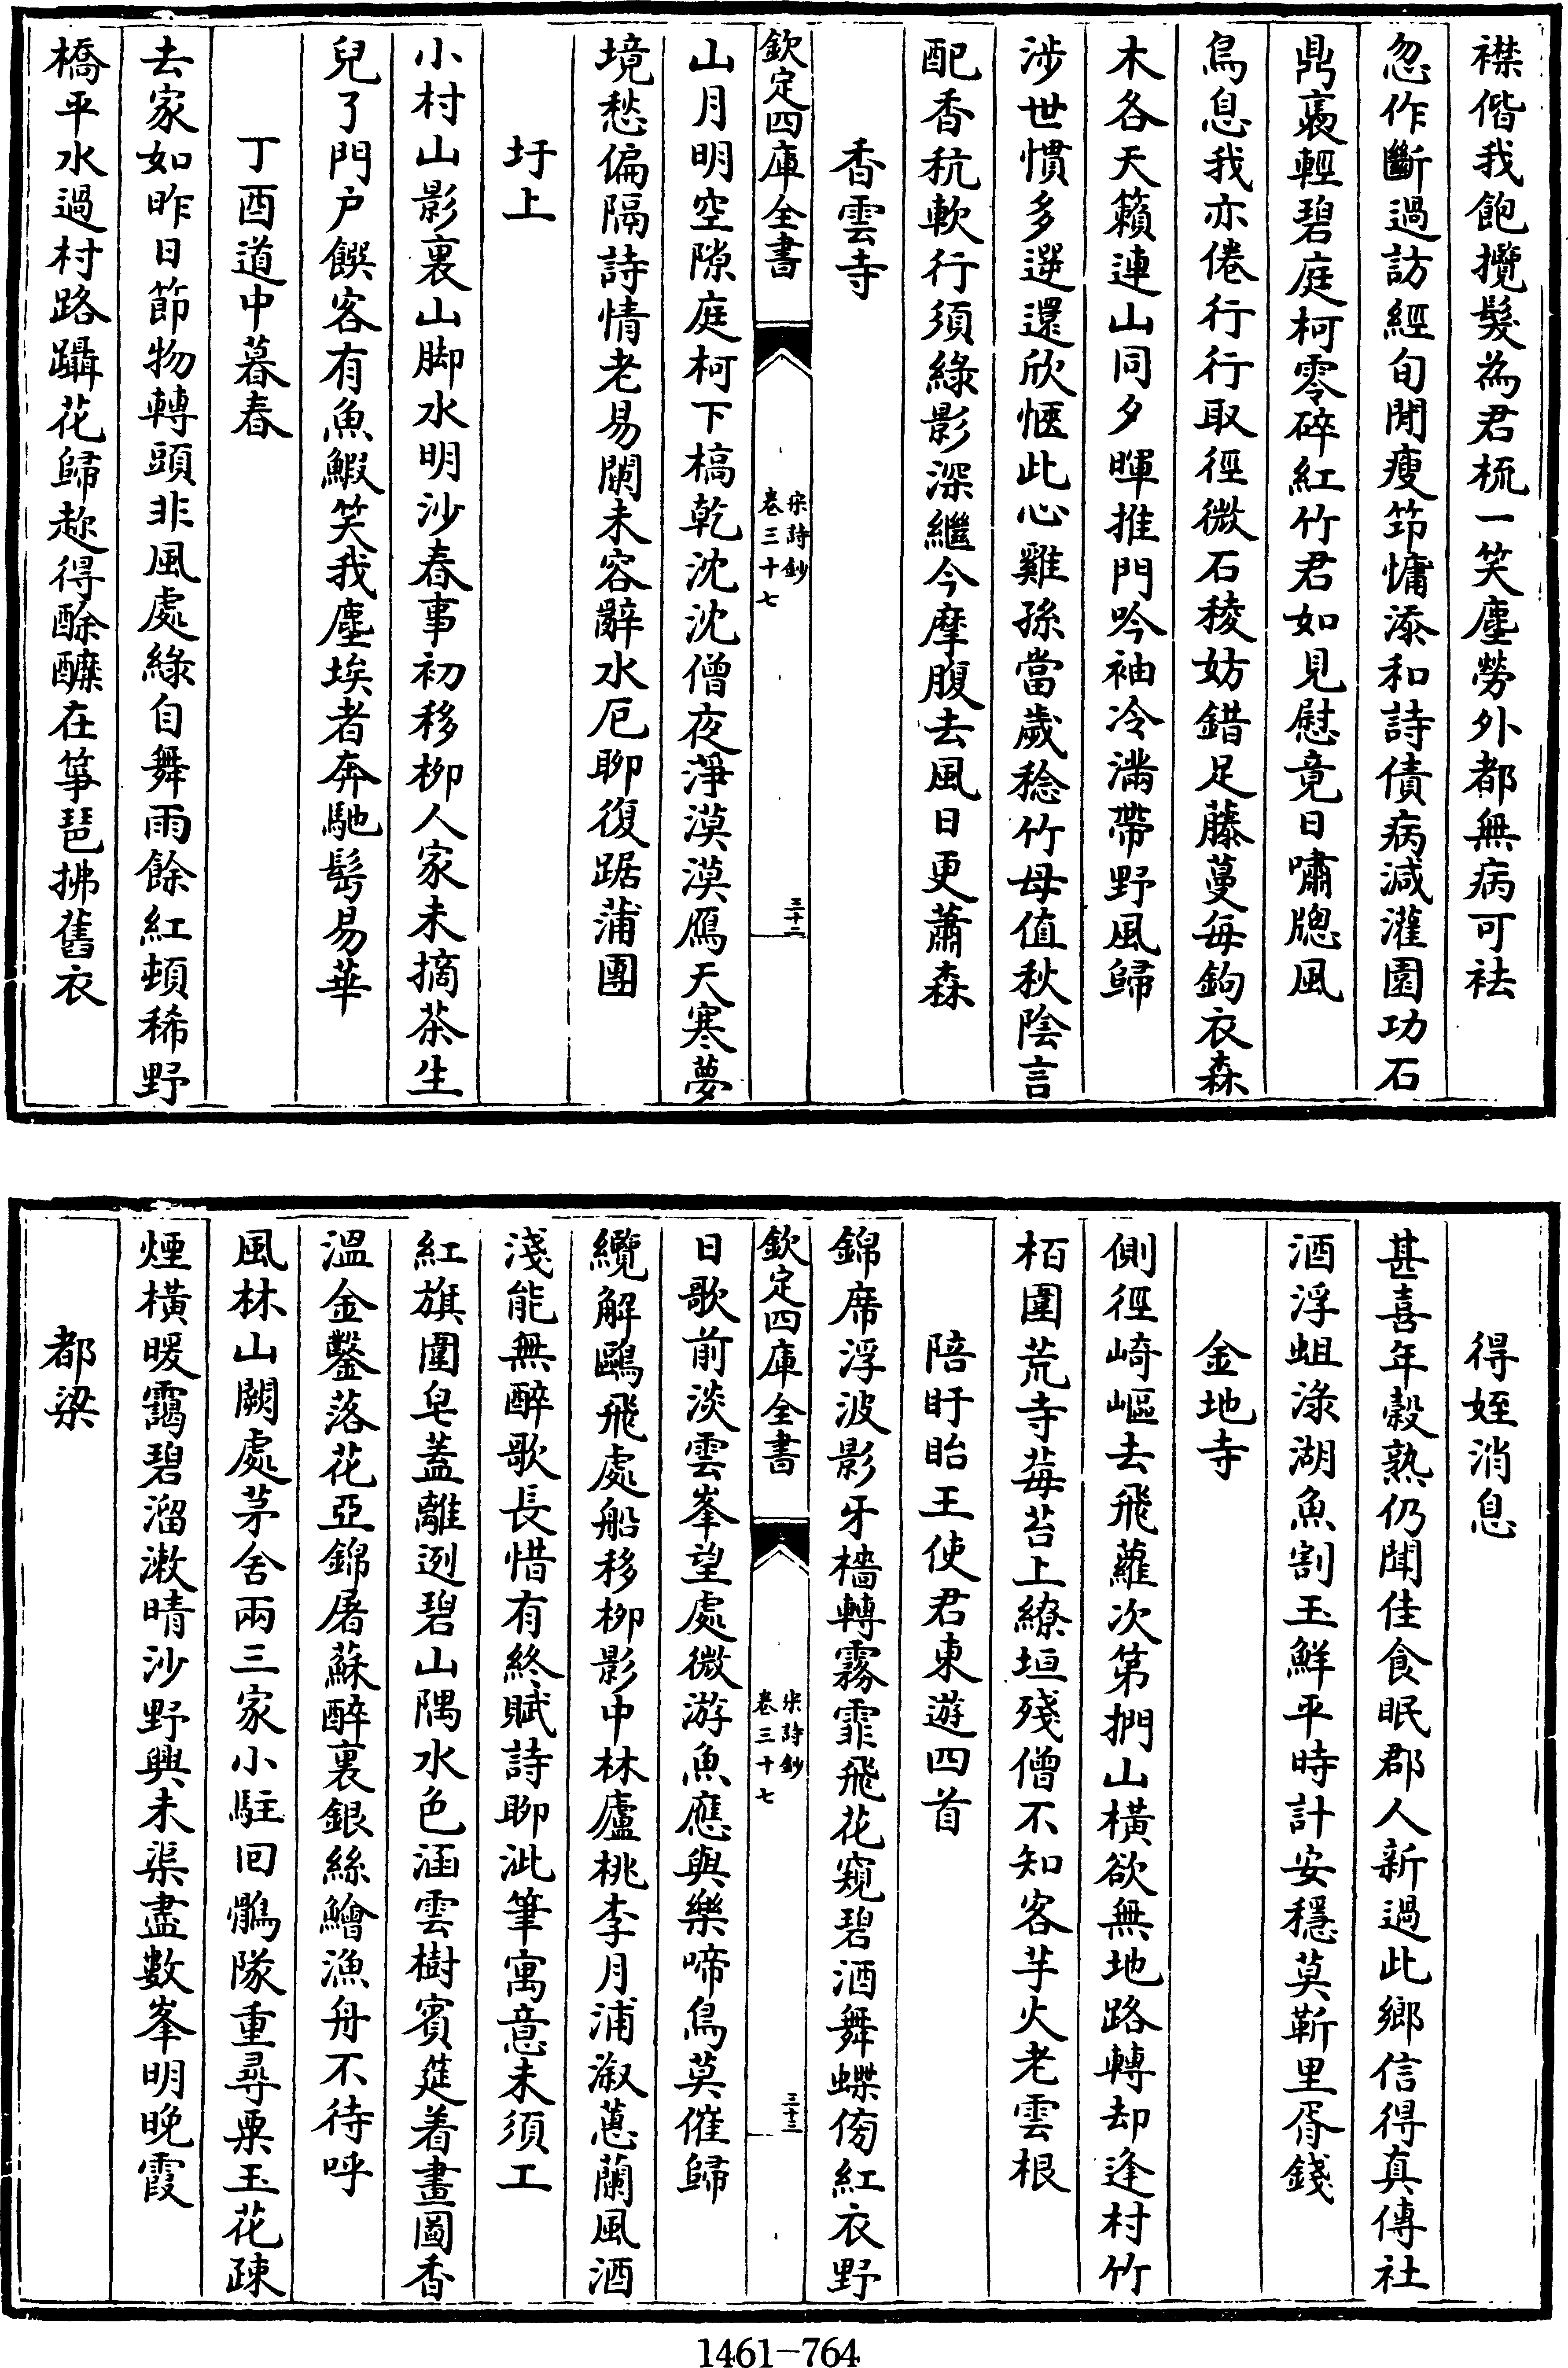 襟偕我飽攬髮為君梳一笑塵勞外都無病可袪
忽作斷過訪經旬閒瘦筇慵添和詩債病減灌園功石
鼎裊輕碧庭柯零碎紅竹君如見慰竟日嘯牕風
鳥息我亦倦行行取徑微石稜妨錯足藤蔓每鉤衣森
木各天籟連山同夕暉推門吟袖冷滿帶野風歸
涉世慣多選還欣愜此心雞孫當歲稔竹母值秋陰言
配香秔軟行須綠影深繼今摩腹去風日更蕭森
香雲寺
欽定四庫全書
宋詩鈔
卷三十七
三十二
山月明空隙庭柯下槁乾沈沈僧夜淨漠漠鴈天寒夢
境愁偏隔詩情老易闌未容辭水厄聊復踞蒲團
圩上
小村山影裏山脚水明沙春事初移栁人家未摘茶生
兒了門户饌客有魚鰕笑我塵埃者奔馳髩易華
丁酉道中暮春
去家如昨日節物轉頭非風處綠自舞雨餘紅頓稀野
橋平水過村路躡花歸趂得酴醾在箏琶拂舊衣
得姪消息
甚喜年穀熟仍聞佳食眠郡人新過此鄉信得真傳社
酒浮蛆淥湖魚割玉鮮平時計安穩莫靳里胥錢
金地寺
側徑崎嶇去飛蘿次第捫山橫欲無地路轉却逢村竹
栢圍荒寺莓苔上繚垣殘僧不知客芋火老雲根
陪盱眙王使君東遊四首
錦席浮波影牙檣轉霧霏飛花窺碧酒舞蝶傍紅衣野
欽定四庫全書
宋詩鈔
卷三十七
三十三
日歌前淡雲峯望處微游魚應與樂啼鳥莫催歸
纜解鷗飛處船移栁影中林廬桃李月浦漵蕙蘭風酒
淺能無醉歌長惜有終賦詩聊泚筆寓意未須工
紅旗圍皂蓋離迾碧山隅水色涵雲樹賓筵着畫圖香
溫金鑿落花亞錦屠蘇醉裏銀絲鱠漁舟不待呼
風林山闕處茅舍兩三家小駐回鶻隊重尋粟玉花疎
煙橫暖靄碧溜漱晴沙野興未渠盡數峯明晚霞
都梁
1461-764